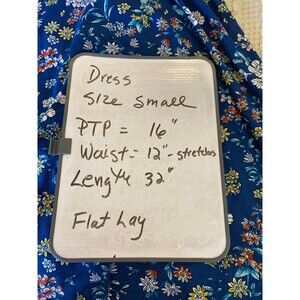 Dress
Size Small
PTP = 16"
Waist = 12" - stretches
Length 32"
Flat Lay